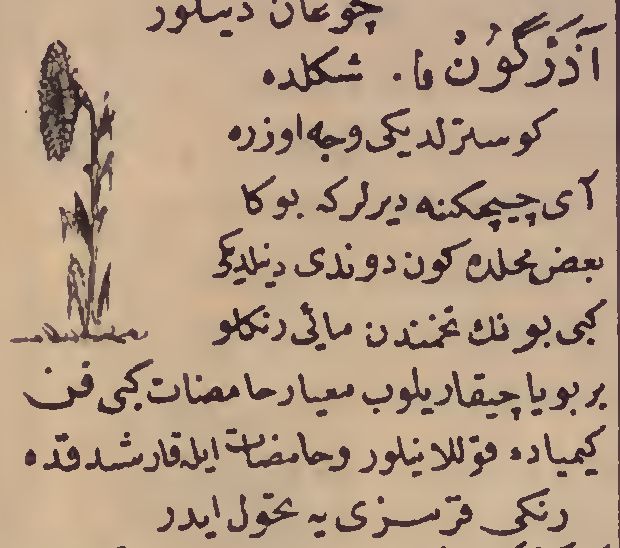 چوغان دینلور
آذَرْگُونُ فا. شکلده
کوسترلدیکی وجه اوزره
آی چیچکنه دیرلر که بوکا
بعض محلده کون دوندی دینلدیکی
کبی بونك تخمندن مائی رنکلو
بر بویا چیقاریلوب معیار حامضات کبی فن
کیمیاده قوللانیلور وحامضات ایله قارشدقده
رنکی قرمزی یه تحول ایدر